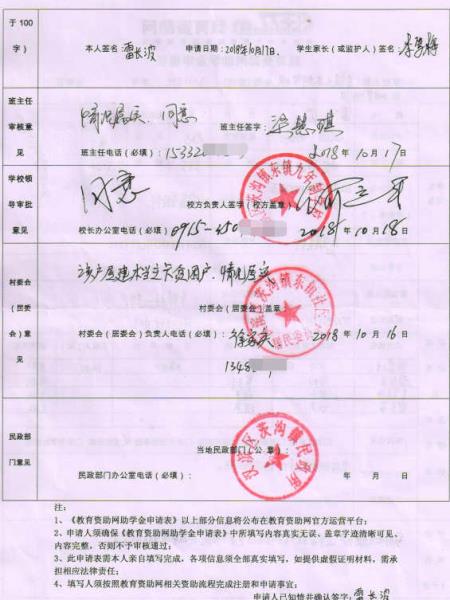 于100
字）
本人签名：雷长波 申请日期：2018年10月17日 学生家长（或监护人）签名：
班主任
审核意
见
情况属实、同意
班主任签字：梁慧琪
班主任电话（必填）：15332
2018 年 10 月 17 日
学校领
导审批
意见
同意
校方负责人签字（校方盖章）
校长办公室电话（必填）：0915-450
2018 年 10 月 18 日
村委会
（居委
会）意
见
该户属建永当立卡贫困户，情况属实
村委会（居委会）盖章
村委会（居委会）负责人电话（必填）：
2018 年 10 月 16 日
1348
民政部
门意见
当地民政部门（公 章）：
民政部门办公室电话（必填）：
汉滨区茨沟镇民政所
注：
1、《教育资助网助学金申请表》以上部分信息将公布在教育资助网官方运营平台；
2、申请人须确保《教育资助网助学金申请表》中所填写内容真实无误、盖章字迹清晰可见、
内容完整，否则不予审核通过；
3、此申请需本人亲自填写完成，各项信息须全部真实填写，如提供虚假证明材料，需承
担相应法律责任；
4、填写人须按照教育资助网相关资助流程完成注册和申请事宜；
申请人已知情并确认签字：雷长波